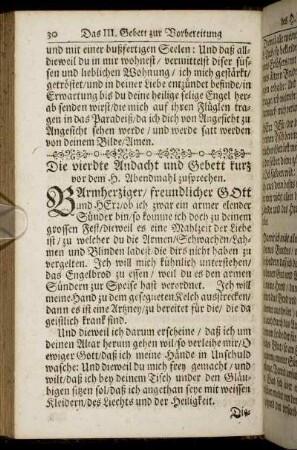 30 Das III. Gebett zur Vorbereitung
und mit einer bußfertigen Seelen: Und daß all-
dieweil du in mir wohnest/ vermittelst dieser süs-
sen und lieblichen Wohnung/ ich mich gestärkt/
getröstet/ und in deiner Liebe entzündet befinde/ in
Erwartung biß du deine heilige selige Engel her-
ab senden wirst/ die mich auf ihren Flüglen tra-
gen in das Paradeiß/ da ich dich von Angesicht zu
Angesicht sehen werde/ und werde satt werden
von deinem Bilde/ Amen.
Die vierdte Andacht und Gebett kurz
vor dem H. Abendmahl zusprechen.
BArmherziger/ freundlicher GOtt
und HErr/ ob ich zwar ein armer elender
Sünder bin/ so komme ich doch zu deinem
grossen Fest/ dieweil es eine Mahlzeit der Liebe
ist/ zu welcher du die Armen/ Schwachen/ Lah-
men und Blinden ladest/ die dirs nicht haben zu
vergelten. Ich will mich kühnlich unterstehen/
das Engelbrod zu essen/ weil du es den armen
Sündern zur Speise hast verordnet. Ich will
meine Hand zu dem gesegneten Kelch ausstrecken/
dann es ist eine Artzney/ zu bereitet für die/ die da
geistlich krank sind.
Und dieweil ich darum erscheine/ daß ich um
deinen Altar herum gehen will/ so verleihe mir/ O
ewiger Gott/ daß ich meine Hände in Unschuld
wasche: Und dieweil du mich frey gemacht/ und
wilt/ daß ich bey deinem Tisch under den Gläu-
bigen sitzen sol/ daß ich angethan seye mit weissen
Kleidern/ des Liechts und der Heiligkeit.
Die-